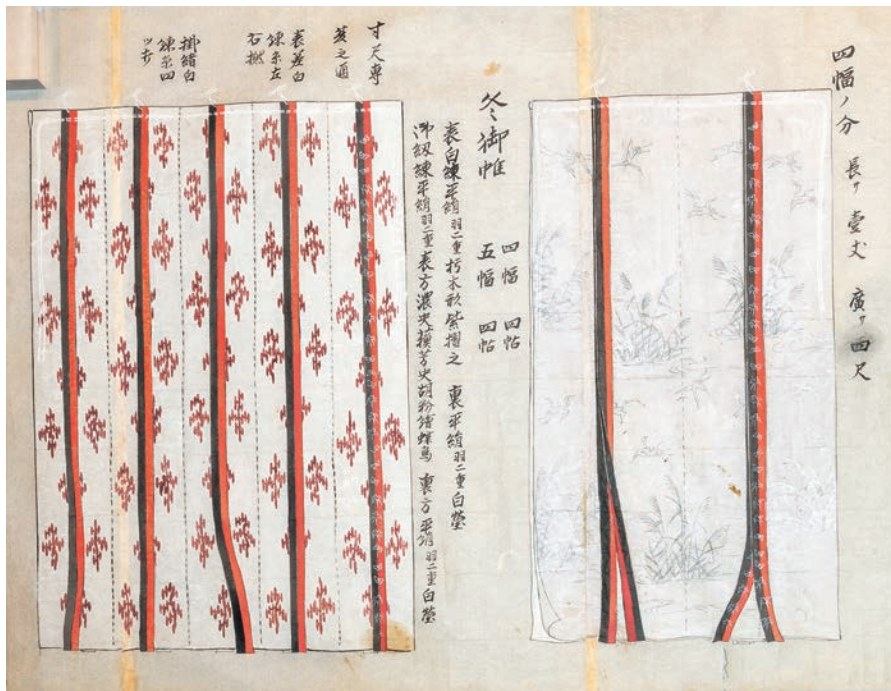 四幅ノ分 長サ壹丈 廣サ四尺
冬御帷 四幅 四帖
五幅 四帖
表白練平絹羽二重朽木形紫摺之 裏平絹羽二重白瑩
御紐練平絹羽二重表方濃 蘇芳 胡粉繪蝶鳥 裏方平絹羽二重白瑩
寸尺専
夏之通
表差白
練糸左
右撚
掛緒白
練糸四
ツ打